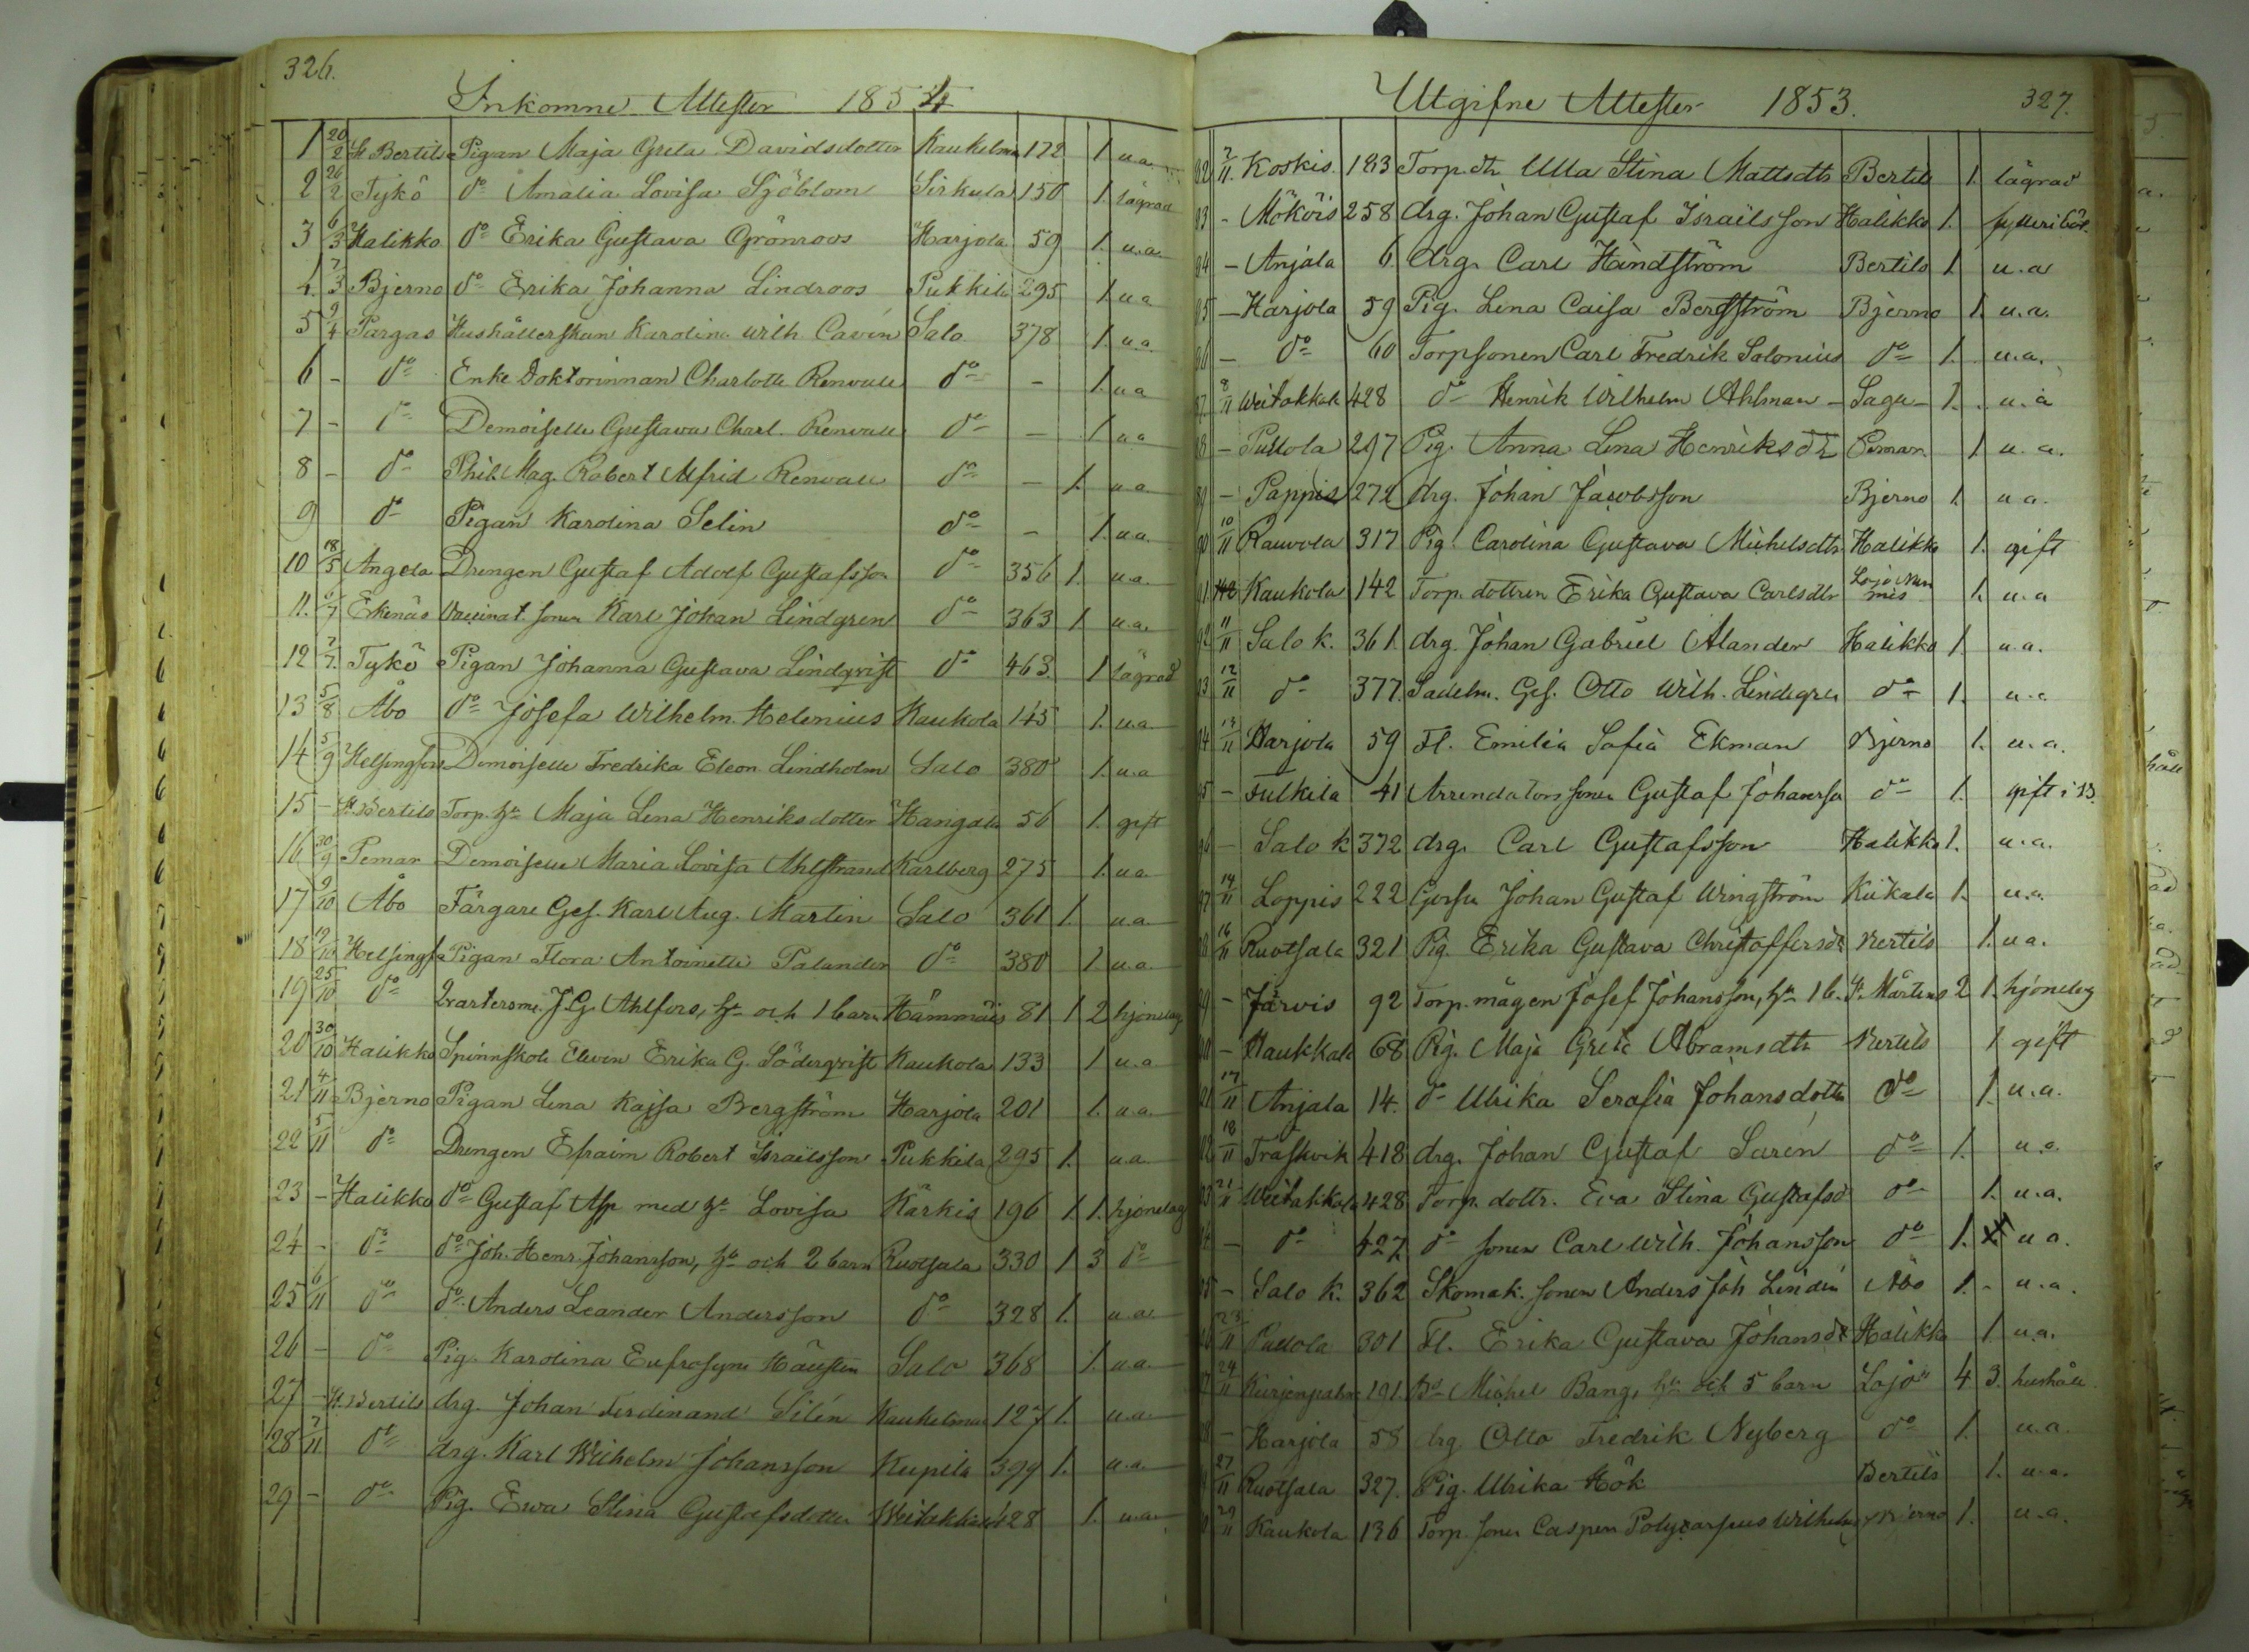 326.
Inkomne Attester 1854
1 20/2 St Bertils Pigan Maja Greta Davidsdotter Kaukelma 172 1 u.a.
2 26/2 Tykö do Amalia Lovisa Sjöblom Sirkula 150 1. lägrad
3 6/3 Halikko do Erika Gustava Grönroos Harjola 59 1. u.a.
4. 7/3 Bjerno do Erika Johanna Lindroos Pukkila 295 1 u.a
5 9/4 Pargas Hushållerskan Karolina Wilh. Cavén Salo 378 1 u.a.
6 - do Enke Doktorinnan Charlotte Renvall do - 1. u a
7 - do Demoiselle Gustava Charl. Renvall do - 1 u a
8 - do Phil. Mag. Robert Alfrid Renvall do - 1. u.a.
9 do Pigan Karolina Selin do - 1. u.a.
10 18/5 Angela Drengen Gustaf Adolf Gustafsson do 356 1. u.a.
11. 6/7 Ekenäs Vaccinat. sonen Karl Johan Lindgren do 363 1 u.a.
12 7/7 Tykö Pigan Johanna Gustava Lindqvist do 463. 1 lägrad
13 5/8 Åbo do Josefa Wilhelm. Helenius Kaukola 145 1. u.a.
14 5/9 Helsingfors Demoiselle Fredrika Eleon. Lindholm Salo 380 1. u.a
15 - St. Bertils Torp. hu Maja Lena Henriksdotter Hangola 56 1. gift
16 30/9 Pemar Demoiselle Maria Lovisa Ahlstrand Karlberg 275 1. u.a
17 9/10 Åbo Färgare Ges. Karl Aug. Martin Salo 361 1. u.a.
18 19/10 Helsingf. Pigan Flora Antoinette Palander do 380 1. u.a.
19 25/10 do Qvartersm. J.G. Ahlfors, hu och 1 barn Hämmäis 81 1 2 hjonelag
20 30/10 Halikko Spinnskole Eleven Erika G. Söderqvist Kaukola 133 1 u.a
21 4/11 Bjerno Pigan Lena Kajsa Bergström Harjola 201 1. u.a.
22 5/11 do Drengen Efraim Robert Israilsson Pukkila 295 1. u.a.
23 - Halikko do Gustaf Asp med hu Lovisa Kärkis 196 1. 1. hjonelag
24 - do do Joh. Henr. Johansson, hu och 2 barn Ruotsala 330 1 3 do
25 6/11 do do Anders Leander Andersson do 328 1. u.a.
26 - do Pig. Karolina Eufrosyne Salo 368 1. u.a.
27 - St. Bertils drg. Johan Ferdinand Silén Kaukelma 127 1. u.a.
28 7/11 do drg. Karl Wilhelm Johansson Kupila 399 1. u.a.
29 - do Pig. Ewa Stina Gustafsdotter Weitakkala 428 1. u.a.
Utgifne Attester 1853. 327.
82 7/11. Koskis. 183 Torp. dtr Ulla Stina Mattsdtr Bertils 1. lägrad
83 - Mököis 258 drg. Johan Gustaf Israilsson Halikko 1. fylleriböt.
84 - Anjala 6. drg. Carl Händström Bertils 1 u.a
85 - Harjola 59 Pig. Lena Caisa Bergström Bjerno 1. u.a.
86 - do 60 Torpsonen Carl Fredrik Solonius do 1. u.a.
87. 8/11 Weitakkala 428 do Henrik Wilhelm Ahlman - Sagu - 1. u.a
88 - Pullola 297 Pig. Anna Lena Henriksdtr Pemar 1 u.a.
89 - Pappis 272 drg. Johan Jacobsson Bjerno 1. u a.
90 10/11 Rauvola 317 Pig. Carolina Gustava Michelsdtr Halikko 1. gift
91. Kaukola 142 Torp. dottren Erika Gustava Carlsdtr Lojo Nummis 1. u.a
92 11/11 Salo k. 361. drg. Johan Gabriel Alander Halikko 1. u.a.
93 12/11 do 377. Sadelm. Ges. Otto Wilh. Lindegren do 1. u.a
94 13/11 Harjola 59 Fl. Emilia Safia Ekman Bjerno 1. u.a.
95 - Fulkila 41 Arrendators sonen Gustaf Johansson do 1. gift i 53.
96 - Salo k 372 drg. Carl Gustafsson Halikko 1. u.a.
97 14/11 Loppis 222 Gossen Johan Gustaf Wingström Kiikala 1. u.a.
98 16/11 Ruotsala 321 Pig. Erika Gustava Christoffersdr Bertils 1. u a.
99 - Järvis 92 Torp. mågen Josef Johansson, hu 1 b. St. Mårtens 2 1. hjonelag
- Haukkala 68 Pig. Maja Greta Abramsdtr Bertils 1 gift
17/11 Anjala 14. do Ulrika Serafia Johansdotter do 1. u.a.
18/11 Träskvik 418 drg. Johan Gustaf Saren do 1. u.a.
21/11 Weitakkala 428 Torp. dottr. Eva Stina Gustafsd do 1. u.a.
- do 427 do sonen Carl Wilh. Johansson do 1. u a.
- Salo k. 362 Skomak. sonen Anders Joh Lindén Åbo 1. - u.a.
23/11 Pullola 301 Fl. Erika Gustava Johansdr Halikko 1 u.a.
24/11 191. Michel Bang, hu och 5 barn Lojo 4 3. hushåll
- Harjola 58 drg. Otto Fredrik Nyberg do 1. u.a.
27/11 Ruotsala 327. Pig. Ulrika Hök Bertils 1. u.a.
29/11 Kaukola 136 Torp. sonen Casper Polycarpus Wilhelm Bjerno 1. u.a.